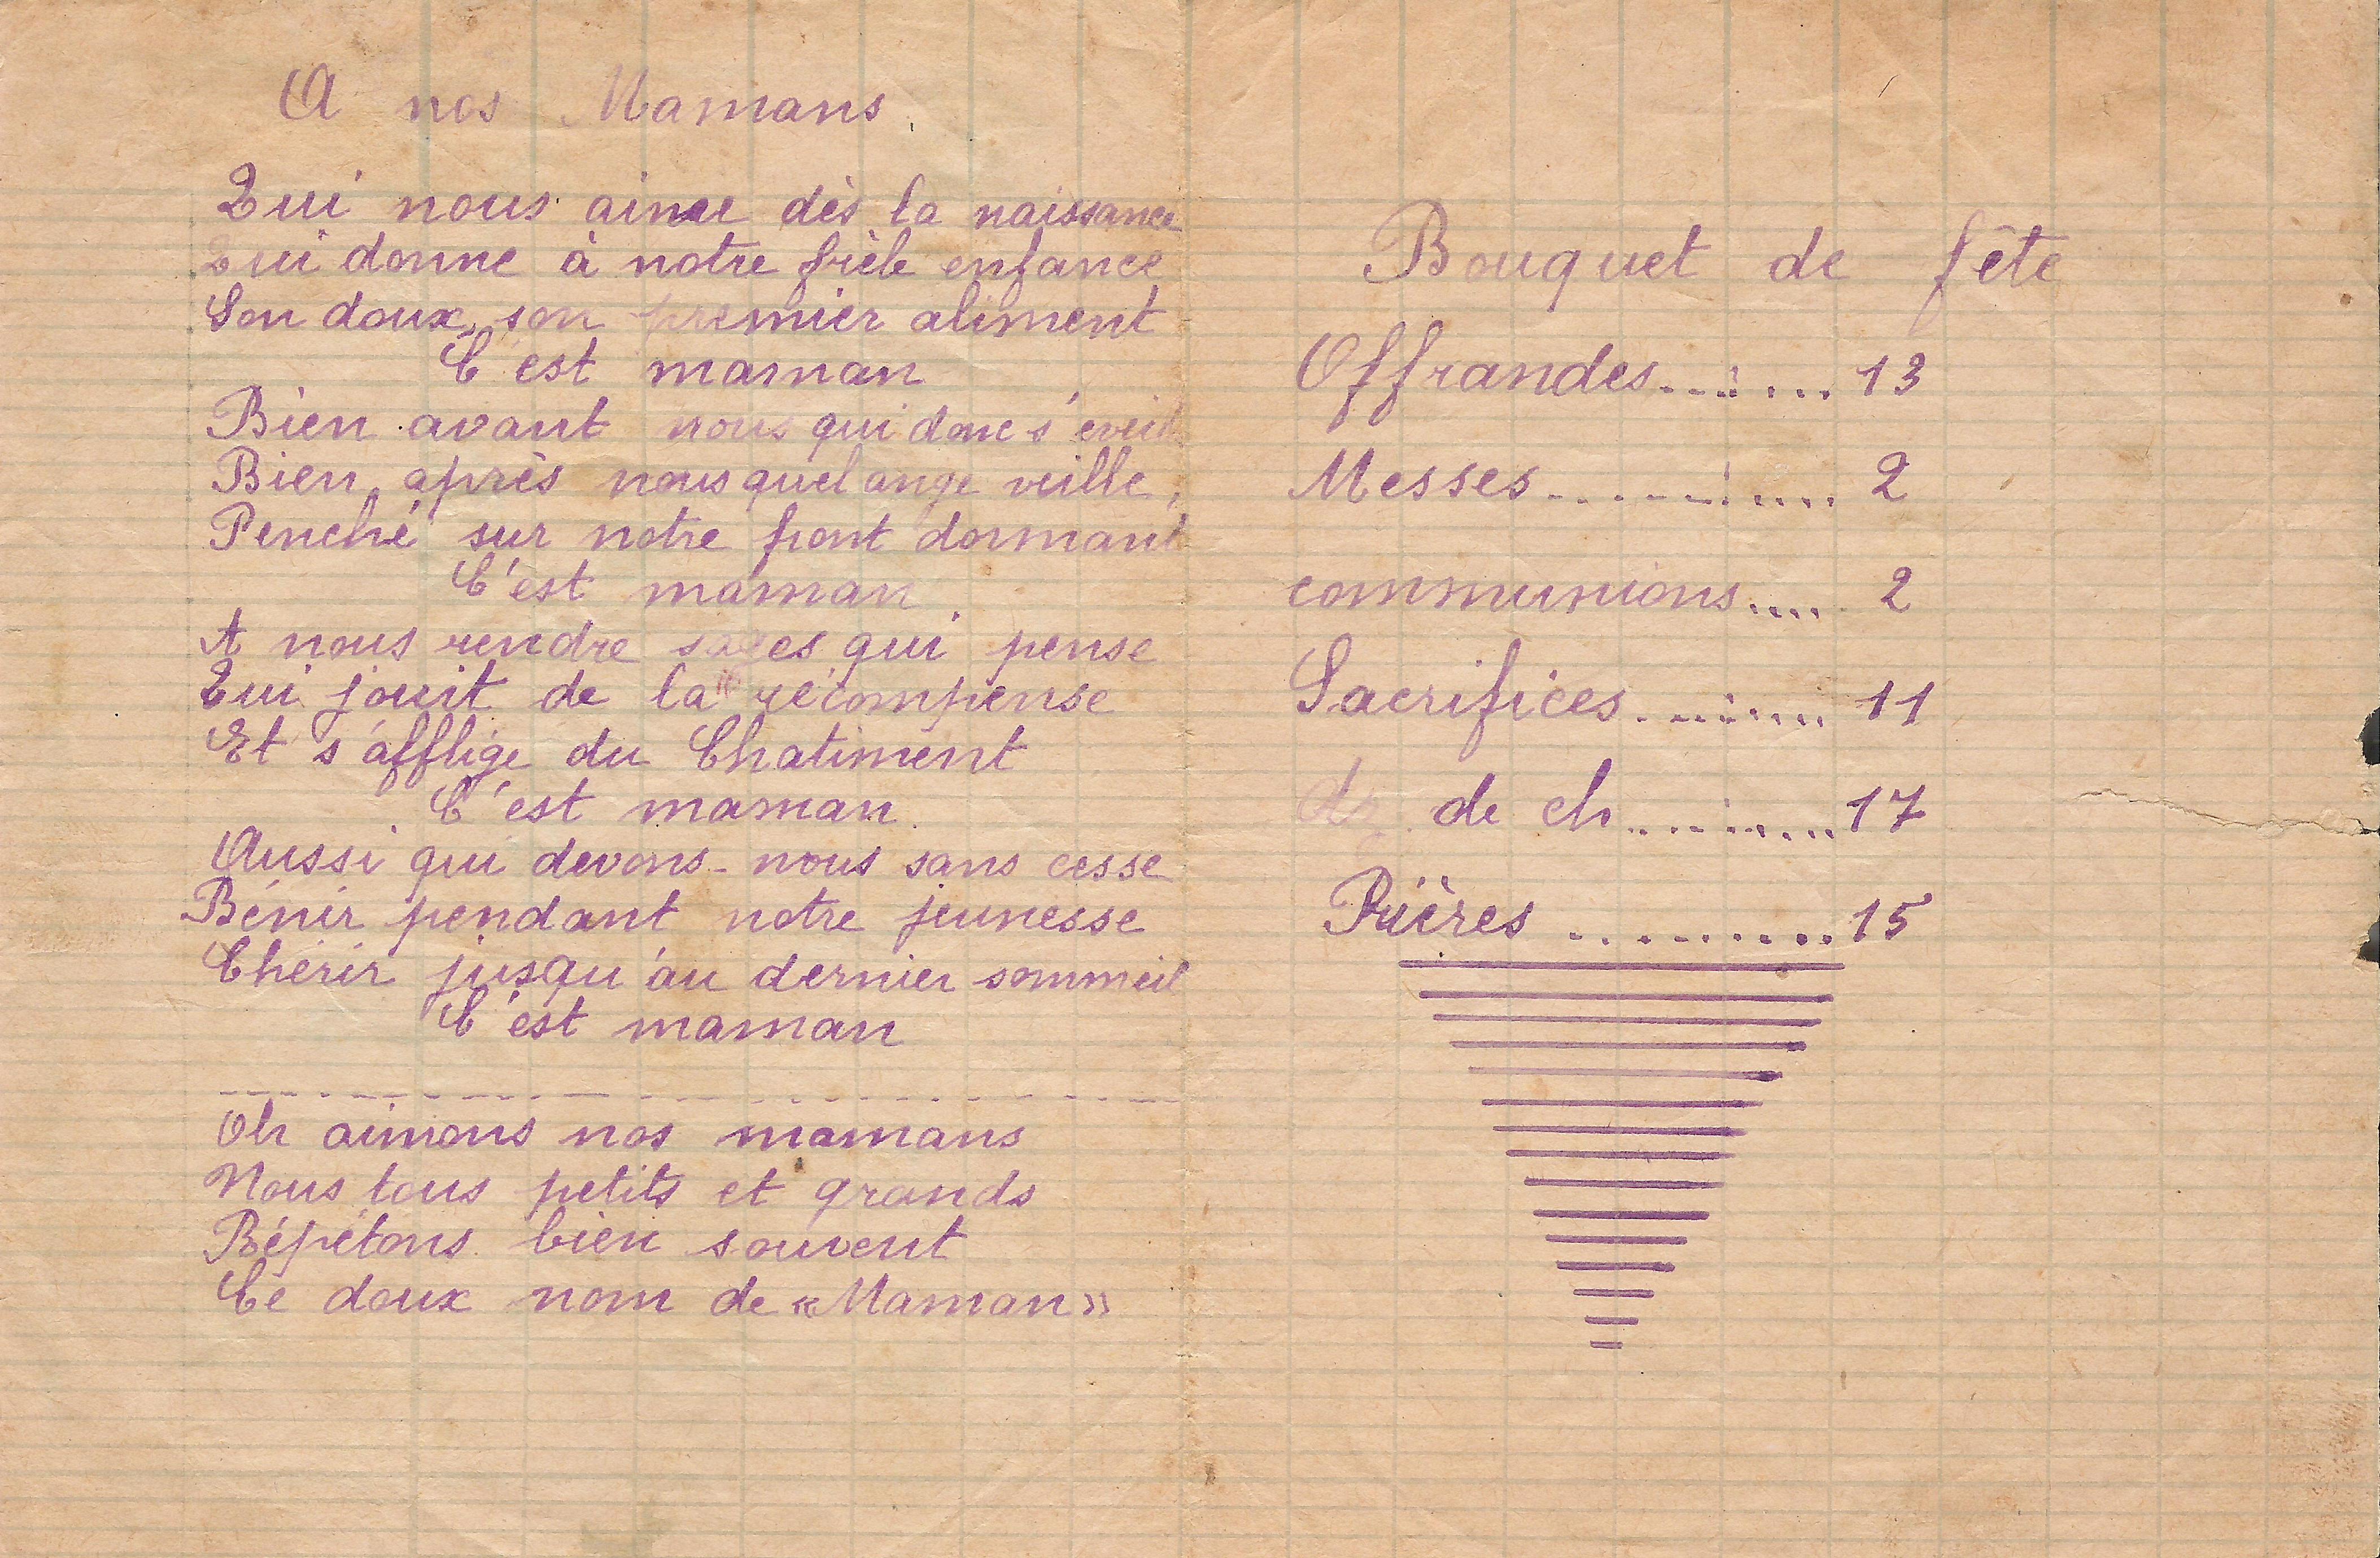 A nos Mamans
Qui nous aime dès la naissance
Qui donne à notre frèle enfance
Son doux, son premier aliment
C'est maman
Bien avant nous qui donc s'éveil
Bien après nous quel ange veille,
Penché sur notre front dormant
C'est maman.
A nous rendre sages qui pense
Qui jouit de la récompense
Et s'afflige du Chatiment
C'est maman.
Aussi qui devons-nous sans cesse
Bénir pendant notre jeunesse
Chérir jusqu'au dernier sommeil
C'est maman
Oh aimons nos mamans
Nous tous petits et grands
Répétons bien souvent
Ce doux nom de «Maman»
Bouquet de fête
Offrandes.......... 13
Messes............. 2
communions.... 2
Sacrifices.......... 11
de ch.......... 17
Prières .......... 15